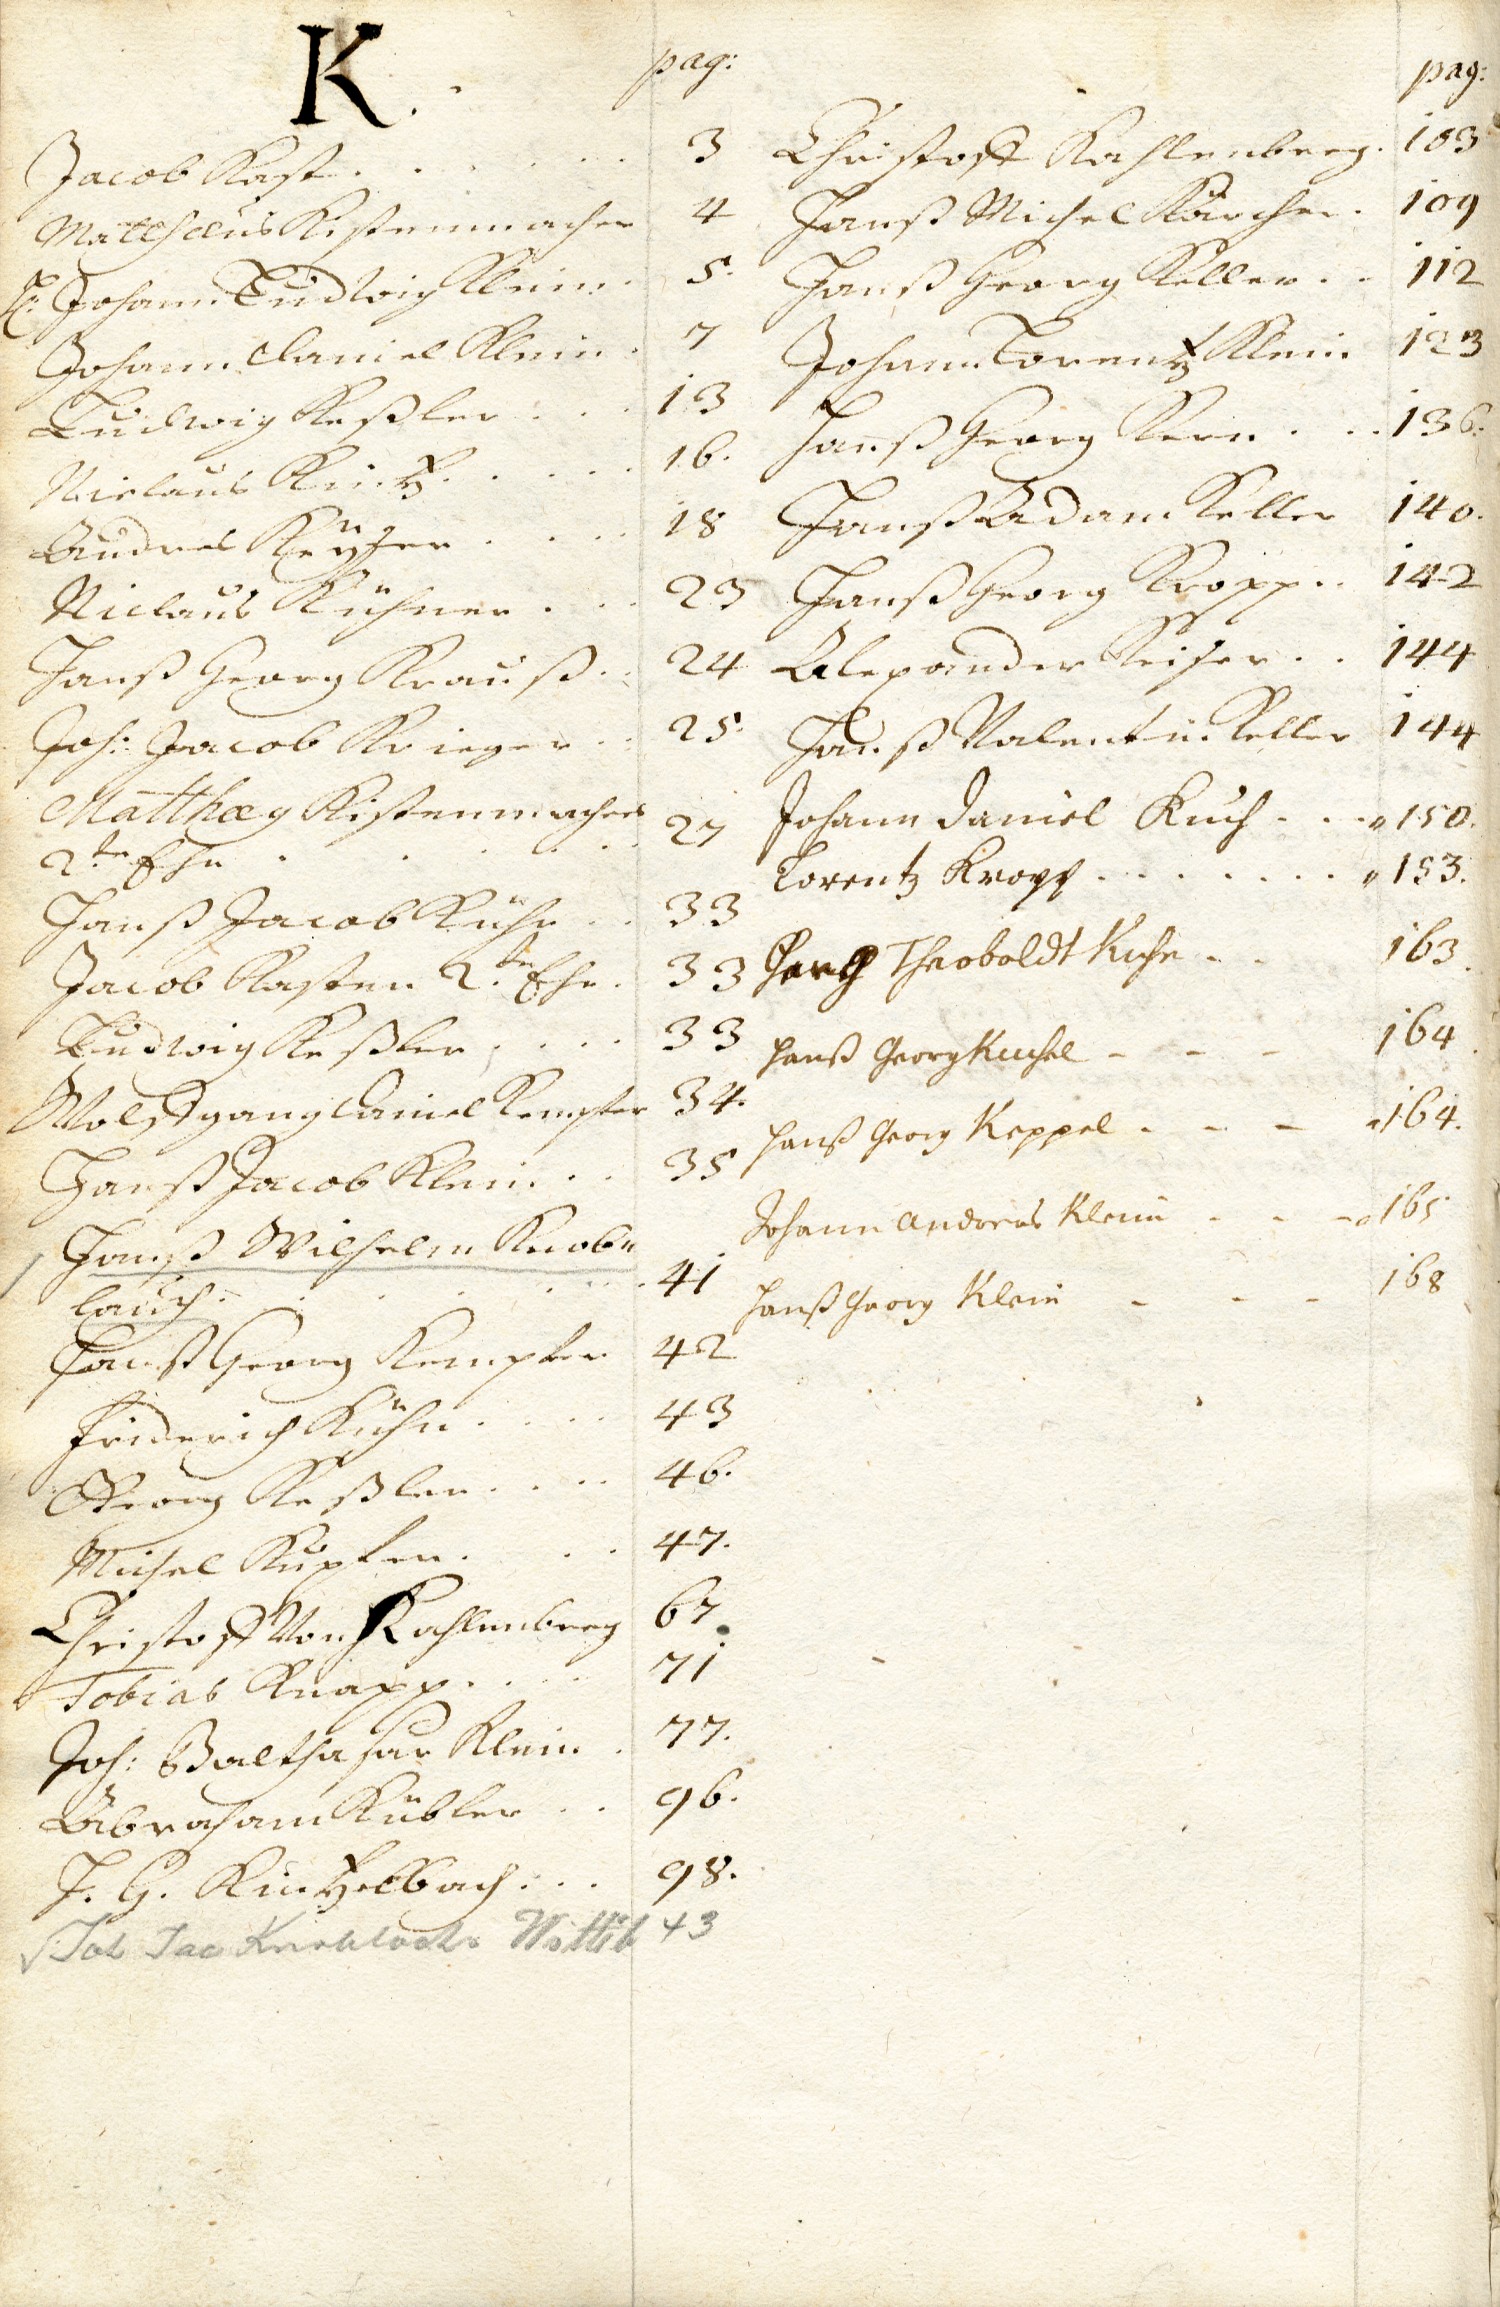 K.
pag:
Jacob Kast. 3
Matthæus Kistenmacher 4
Johann Ludwig Klein. 5.
Johann Daniel Klein. 7
Ludwig Keßler 13
Niclaus Kintz. 16.
Andres Keyser 18
Niclaus Kühner. 23
Hanß Georg Krauß. 24
Joh: Jacob Krieger 25.
Matthæy Kistenmachers
2.te Ehe 27
Hanß Jacob Kühn 33
Jacob Kasten 2.te Ehe. 33
Ludwig Keßler 33
Wolffgang Daniel Kempfer 34.
Hanß Jacob Klein 35
Hanß Wilhelm Knob=
lauch. 41
Hanß Georg Kempfer 42
Friderich Kühn 43
Georg Keßler 46.
Michel Kupfer. 47.
Christoff Von Kahlenberg 67
Tobias Knapp. 71
Joh: Balthasar Klein. 77.
Abraham Kübler 96.
J. G. Kintzelbach. 98.
Joh Jac Knoblochs Wittib 43
pag:
Christoff Kahlenberg. 103
Hanß Michel Kärcher. 109
Hanß Georg Keller 112
Johann Lorentz Klein 123
Hanß Georg Kern 136.
Hanß Adam Keller 140.
Hanß Georg Kropp 142
Alexander Keiser 144
Hanß Valentin Keller 144
Johann Daniel Kuch 150.
Lorentz Kropf 153.
Theoboldt Kuhn 163.
Hanß Georg Kuchel 164
Hanß Georg Keppel 164.
Johann Andreas Klein 165
Hanß Georg Klein 168